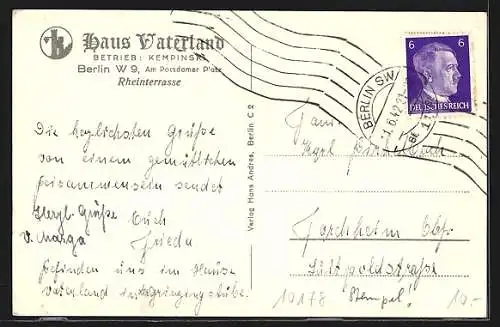 Haus Vaterland
BETRIEB: KEMPINSKI
Berlin W 9, Am Potsdamer Platz
Rheinterrasse
6 6
DEUTSCHES REICH
BERLIN SW
1.6.42.21
Die herzlichsten Grüße
von einem gemütlichen
Beisammensein sendet
Herzl. Grüße Euch
v. Marga Frieda
Befinden uns im Hause
Vaterland in Grinzingstube.
Verlag Hans Andres, Berlin C 2
Fam.
Forchheim Obf.
Luitpoldstraße
10178 Stempel! 10.-